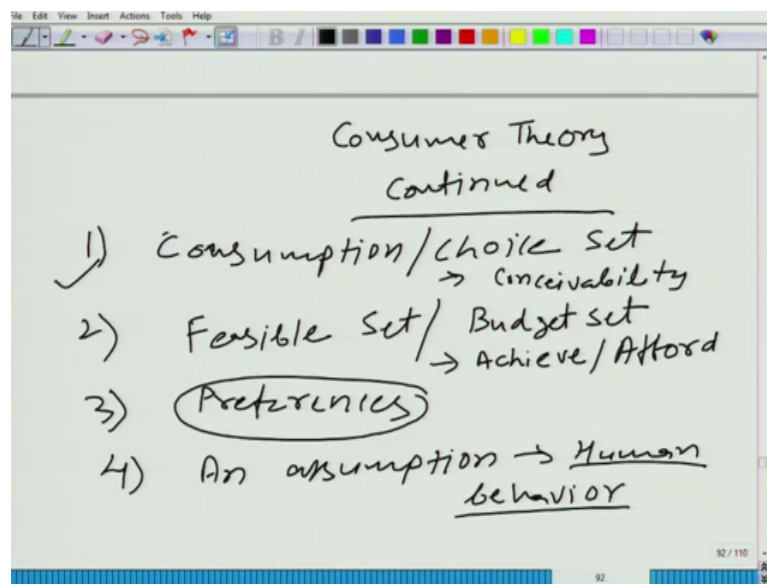 File Edit View Insert Actions Tools Help
Consumer Theory
Continued
1) Consumption/Choice Set
→ Conceivability
2) Feasible Set/ Budget set
→ Achieve/Afford
3) Preferences
4) An assumption → Human
behavior
92 / 110
92